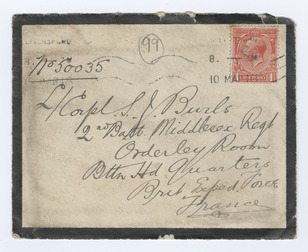 99
No 50035
8.
10 MAR
L/Corpl S. J. Burls
2nd Batt. Middlesex Regt
Orderley Room
Bttn Hd Quarters
Brit Exped. Force
France